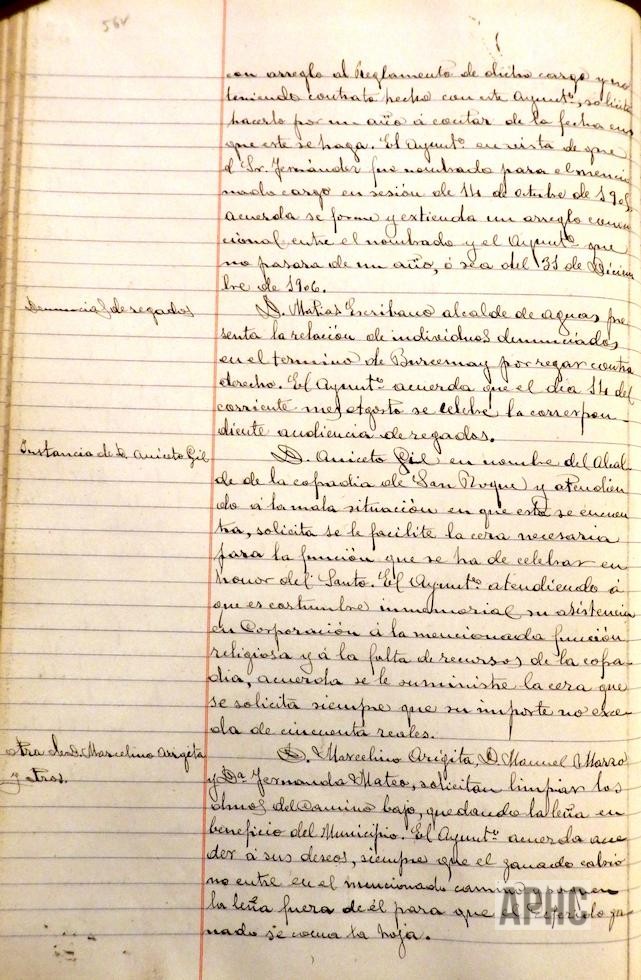 56v
con arreglo al Reglamento de dicho cargo y no
teniendo contrato hecho con este Ayuntº, solicita
hacerlo por un año á contar de la fecha en
que este se haga. El Ayuntº en vista de que
el Sr. Fernández fue nombrado para el mencio
nado cargo en sesión de 14 de octubre de 1905
acuerda se forme y extienda un arreglo conven
cional entre el nombrado y el Ayuntº que
no pasara de un año, ó sea del 31 de Diciem
bre de 1906.
Denuncias de regados
D. Matias Escribano alcalde de aguas pre
senta la relación de individuos denunciados
en el termino de Burcemay por regar contra
derecho. El Ayuntº acuerda que el día 14 del
corriente mes Agosto se celebre la correspon-
diente audiencia de regados.
Instancia de D. Aniceto Gil
D. Aniceto Gil en nombre del Alcal-
de de la cofradia de San Roque y atendien
do á la mala situación en que esta se encuen
tra, solicita se le facilite la cera necesaria
para la función que se ha de celebrar en
honor del Santo. El Ayuntº atendiendo á
que es costumbre inmemorial su asistencia
en Corporación á la mencionada función
religiosa y á la falta de recursos de la cofra-
dia, acuerda se le suministre la cera que
se solicita siempre que su importe no exce-
da de cincuenta reales.
otra de D. Marcelino Arigita
y otros.
D. Marcelino Arigita, D. Manuel Marzo
y Dª Fernanda Mateo, solicitan limpiar los
olmos del Camino bajo, quedando la leña en
beneficio del Municipio. El Ayuntº acuerda acce
der á sus deseos, siempre que el ganado cabrío
no entre en el mencionado camino y
la leña fuera de él para que el referido ga
nado se coma la hoja.
APHC